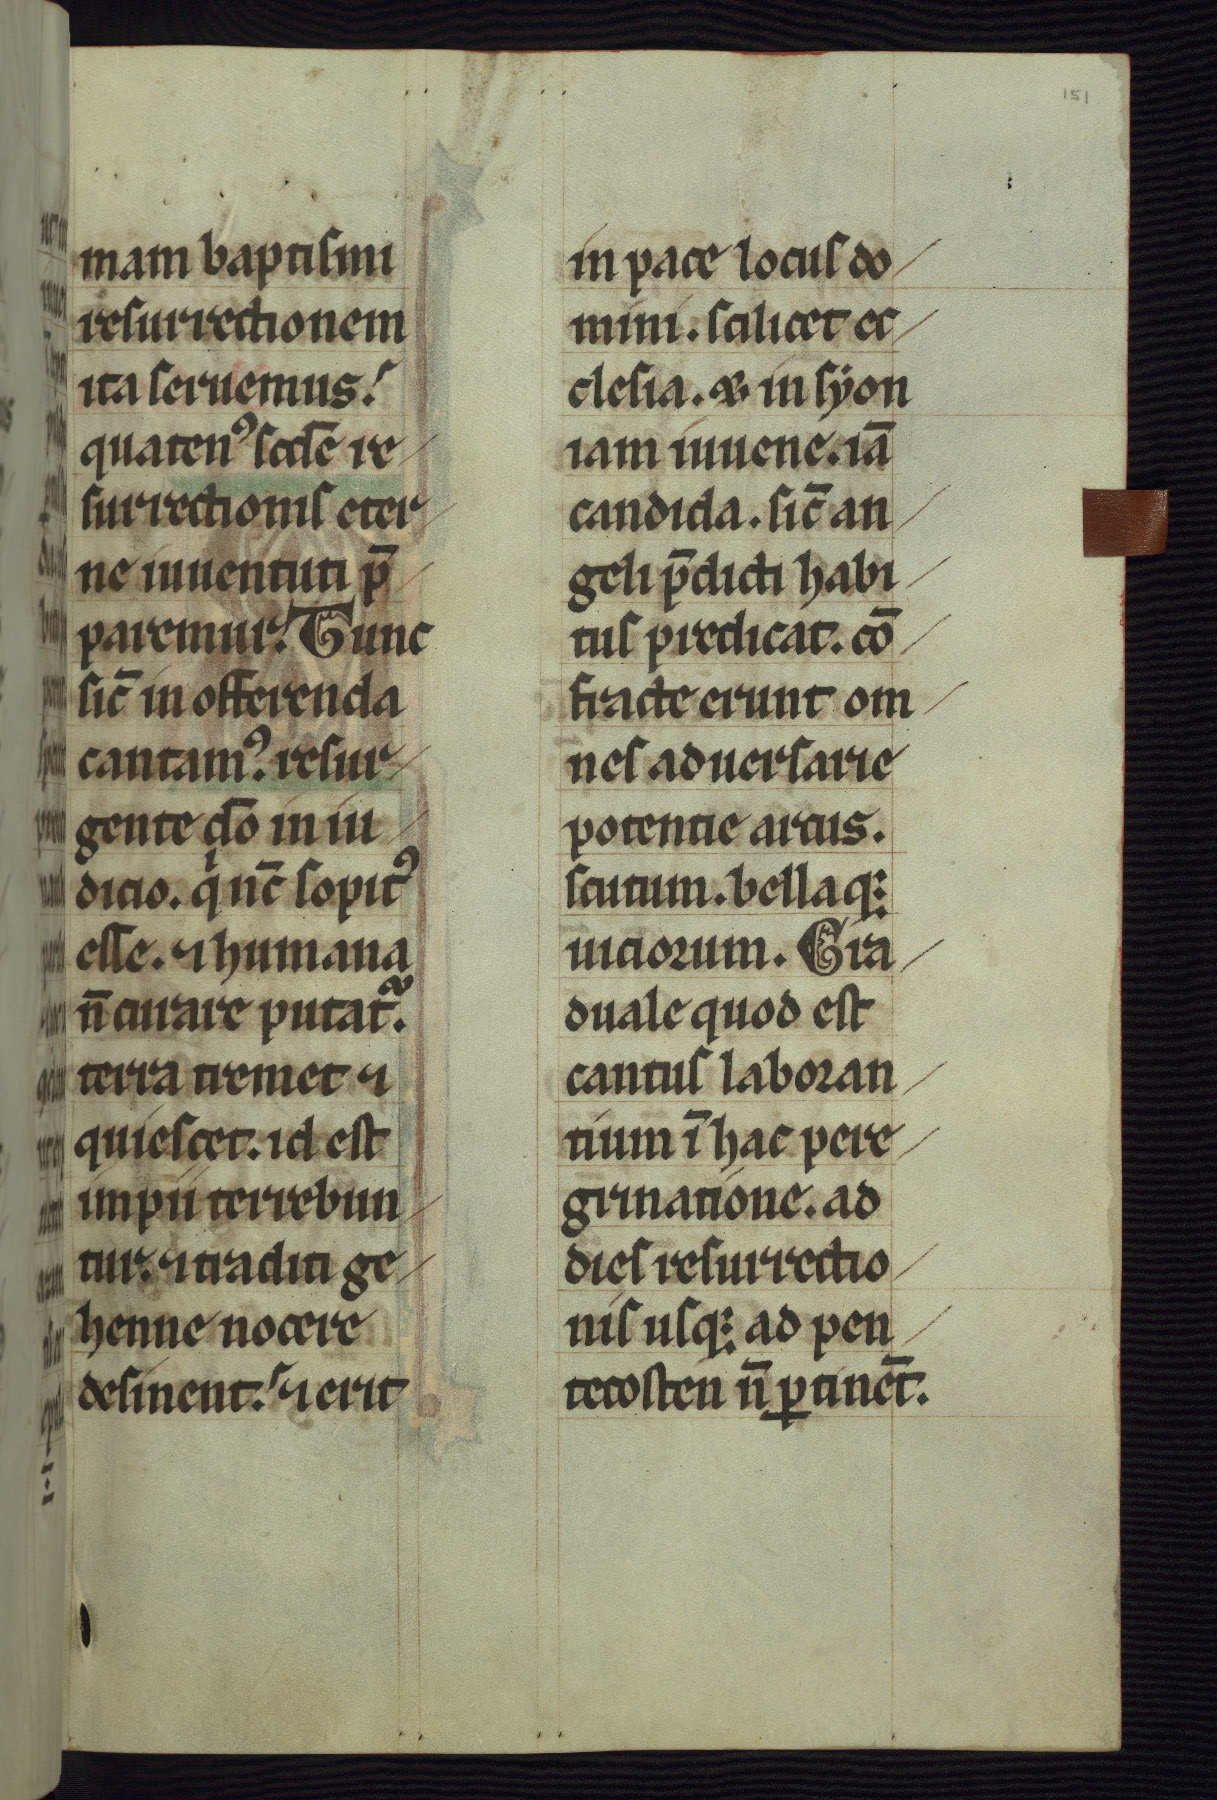 151
mam baptismi
resurrectionem
ita seruemus.
quaten⁹ scd̄e re
surrectionis eter
ne iuuentuti p̄
paremur. Tunc
sic̄ in offerenda
cantam⁹. resur
gente dō in iu
dicio. qͥ nc̄ sopit⁹
esse. ⁊ humana
n̄ curare putat᷑.
terra tremet ⁊
quiescet. id est
impii terrebun
tur. ⁊ traditi ge
henne nocere
desinent. ⁊ erit
in pace locus do
mini. scilicet ec
clesia. & in syon
iam iuuene. iā
candida. sic̄ an
geli p̄dicti habi
tus predicat. cō
fracte erunt om
nes aduersarie
potentie arcus.
scutum. bellaqꝫ
uiciorum. Gra
duale quod est
cantus laboran
tium ī hac pere
grinatione. ad
dies resurrectio
nis usqꝫ ad pen
tecosten n̄ ꝑtinēt.